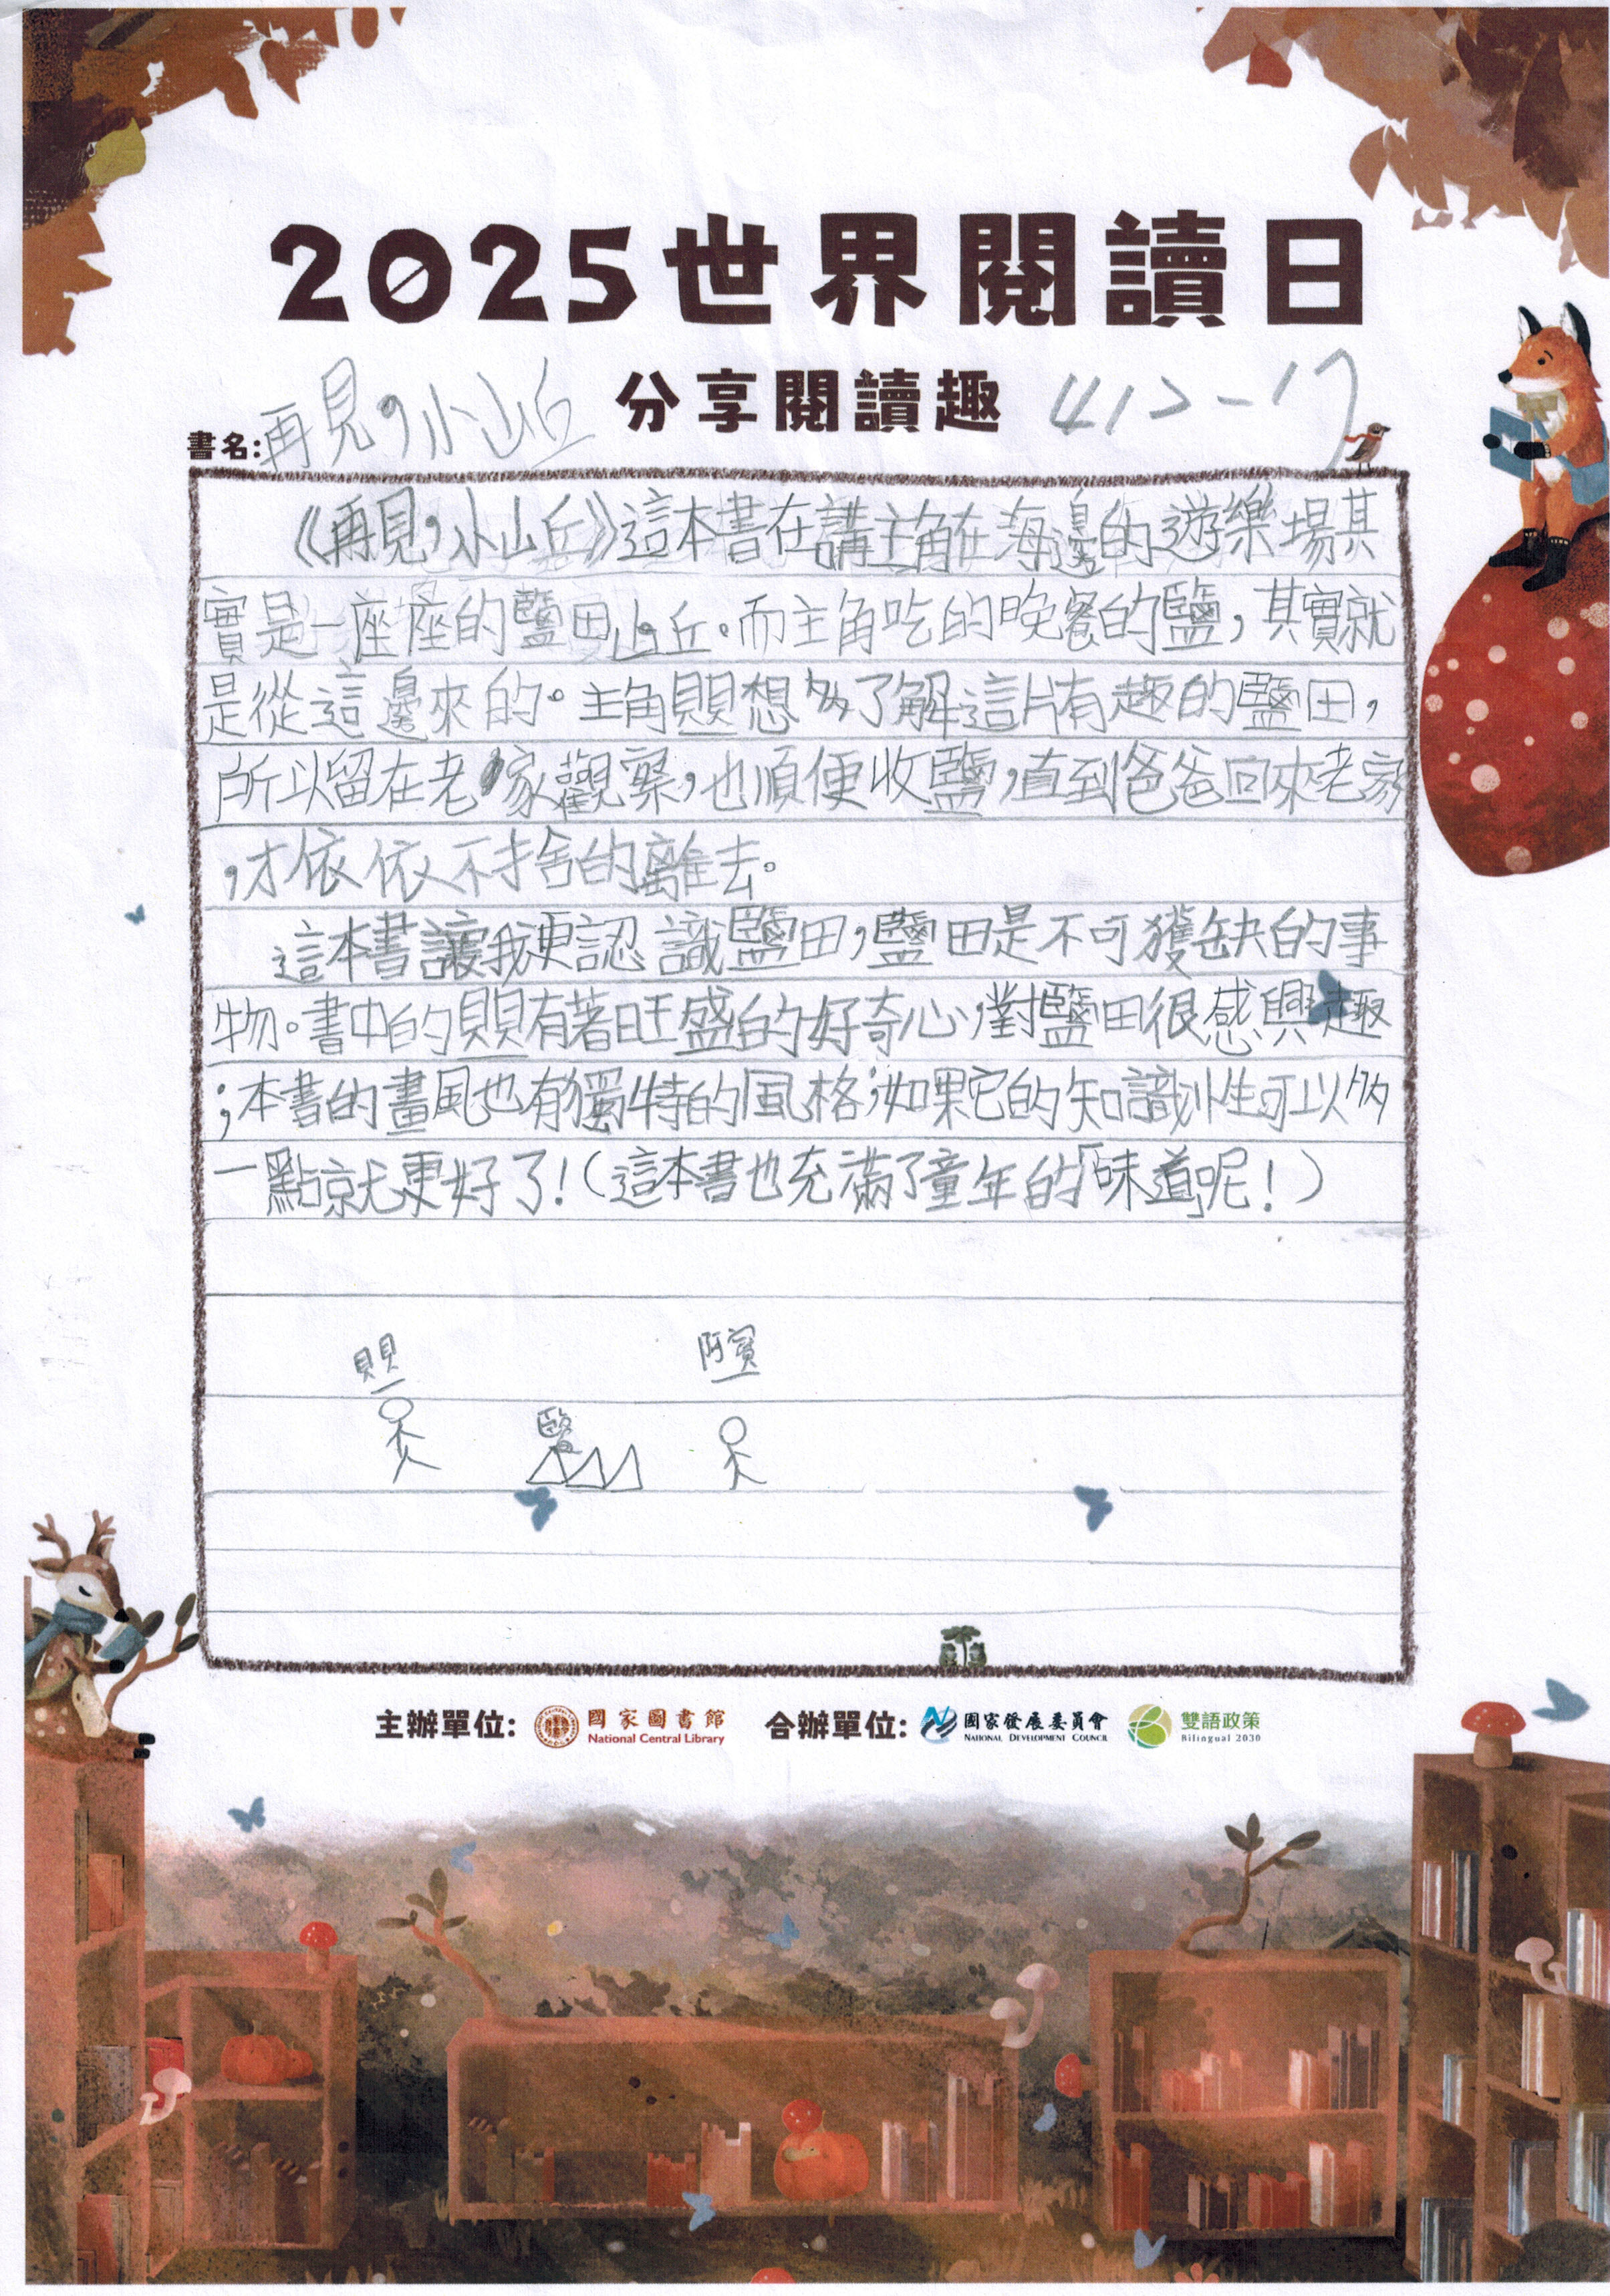 2025世界閱讀日
分享閱讀趣
412-17
書名:再見,小山丘
《再見,小山丘》這本書在講主角在海邊的遊樂場其
實是一座座的鹽田山丘。而主角吃的晚餐的鹽,其實就
是從這邊來的。主角貝貝想多了解這片有趣的鹽田,
所以留在老家觀察,也順便收鹽,直到爸爸回來老家
,才依依不捨的離去。
這本書讓我更認識鹽田,鹽田是不可獲缺的事
物。書中的貝貝有著旺盛的好奇心,對鹽田很感興趣
;本書的畫風也有獨特的風格;如果它的知識性可以多
一點就更好了!(這本書也充滿了童年的「味道」呢!)
貝貝
阿賓
鹽
主辦單位: 國家圖書館 National Central Library 合辦單位: 國家發展委員會 NATIONAL DEVELOPMENT COUNCIL 雙語政策 Bilingual 2030